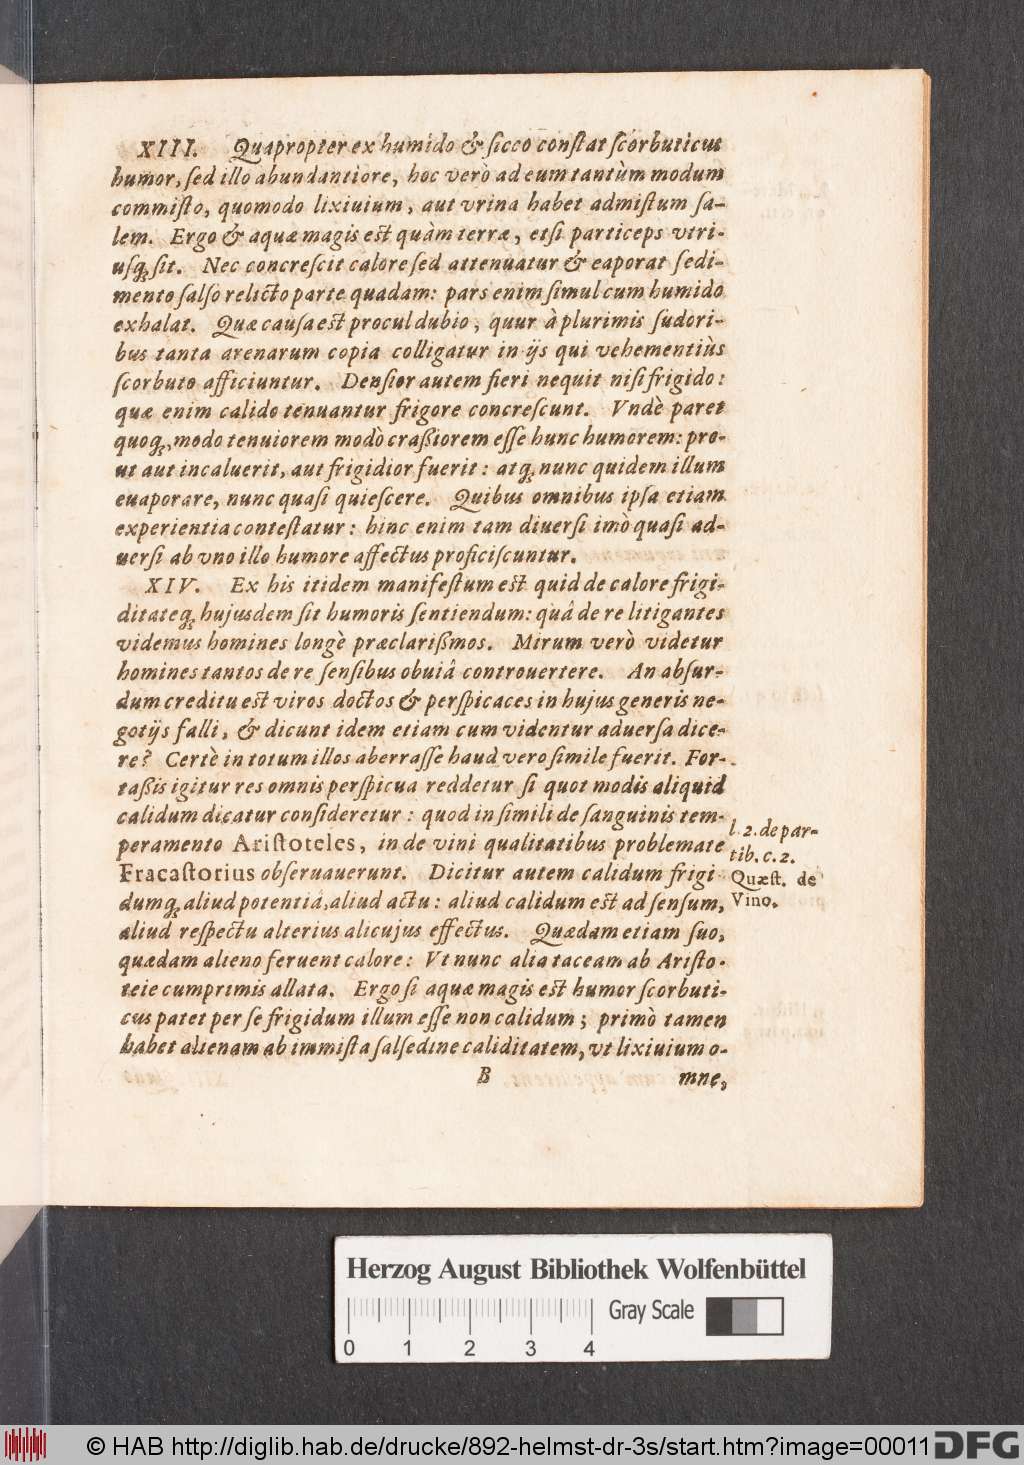 XIII. Quapropter ex humido & ſicco conſtat ſcorbuticus
humor, ſed illo abundantiore, hoc verò ad eum tantùm modum
commiſto, quomodo lixiuium, aut vrina habet admiſtum ſa-
lem. Ergo & aquæ magis eſt quàm terræ, etſi particeps vtri-
uſq́; ſit. Nec concreſcit calore ſed attenuatur & eaporat ſedi-
mento ſalſo relicto parte quadam: pars enim ſimul cum humido
exhalat. Quæ cauſa eſt procul dubio, quur à plurimis ſudori-
bus tanta arenarum copia colligatur in ijs qui vehementiùs
ſcorbuto afficiuntur. Denſior autem fieri nequit niſi frigido:
quæ enim calido tenuantur frigore concreſcunt. Vndè paret
quoq́; modo tenuiorem modò craßiorem eſſe hunc humorem: pro-
ut aut incaluerit, aut frigidior fuerit: atq́; nunc quidem illum
euaporare, nunc quaſi quieſcere. Quibus omnibus ipſa etiam
experientia conteſtatur: hinc enim tam diuerſi imò quaſi ad-
uerſi ab vno illo humore affectus proficiſcuntur.
XIV. Ex his itidem manifeſtum eſt quid de calore frigi-
ditateq́; hujusdem ſit humoris ſentiendum: quâ de re litigantes
videmus homines longè præclarißmos. Mirum verò videtur
homines tantos de re ſenſibus obuiâ controuertere. An abſur-
dum creditu eſt viros doctos & perſpicaces in hujus generis ne-
gotijs falli, & dicunt idem etiam cum videntur aduerſa dice-
re? Certè in totum illos aberraſſe haud vero ſimile fuerit. For-
taßis igitur res omnis perſpicua reddetur ſi quot modis aliquid
calidum dicatur conſideretur: quod in ſimili de ſanguinis tem-
peramento Ariſtoteles, in de vini qualitatibus problemate
Fracaſtorius obſeruauerunt. Dicitur autem calidum frigi
dumq́; aliud potentiâ, aliud actu: aliud calidum eſt ad ſenſum,
aliud reſpectu alterius alicujus effectus. Quædam etiam ſuo,
quædam alieno feruent calore: Vt nunc alia taceam ab Ariſto-
tele cumprimis allata. Ergo ſi aquæ magis eſt humor ſcorbuti-
cus patet per ſe frigidum illum eſſe non calidum; primò tamen
habet alienam ab immiſta ſalſedine caliditatem, vt lixiuium o-
B mne,
l. 2. de par-
tib. c. 2.
Quæſt. de
Vino.
Herzog August Bibliothek Wolfenbüttel
Gray Scale
0 1 2 3 4
© HAB http://diglib.hab.de/drucke/892-helmst-dr-3s/start.htm?image=00011
DFG